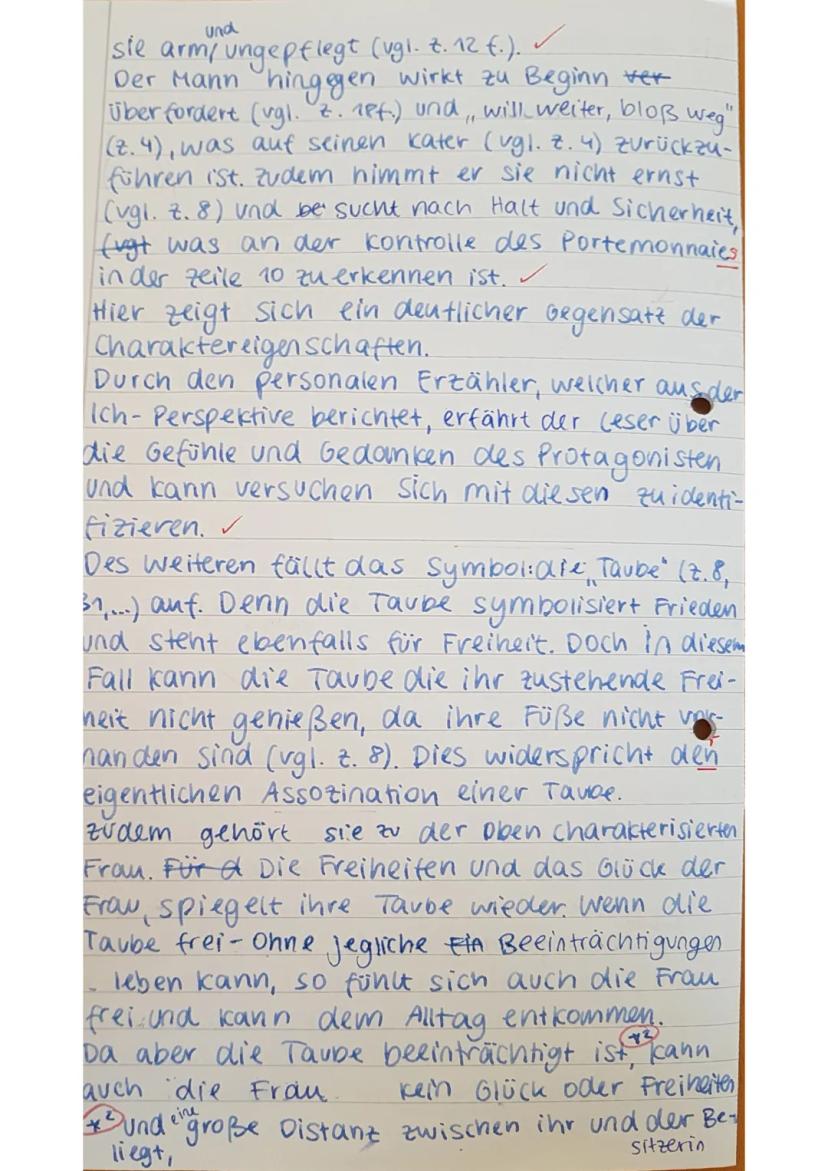 und
sie arm, ungepflegt (vgl. Z. 12 f.). ✓
Der Mann hingegen wirkt zu Beginn ver
überfordert (vgl. Z. 1pf.) und „will weiter, bloß weg"
(Z. 4), was auf seinen Kater (vgl. Z. 4) zurückzu-
führen ist. Zudem nimmt er sie nicht ernst
(vgl. Z. 8) und be sucht nach Halt und Sicherheit,
(vgt was an der Kontrolle des Portemonnaies
in der Zeile 10 zu erkennen ist. ✓
Hier zeigt sich ein deutlicher Gegensatz der
Charaktereigenschaften.
Durch den personalen Erzähler, welcher aus der
Ich-Perspektive berichtet, erfährt der Leser über
die Gefühle und Gedanken des Protagonisten
und kann versuchen sich mit diesen zu identi-
fizieren. ✓
Des Weiteren fällt das Symbol: die „Taube" (Z. 8,
31,...) auf. Denn die Taube symbolisiert Frieden
und steht ebenfalls für Freiheit. Doch in diesem
Fall kann die Taube die ihr zustehende Frei-
heit nicht genießen, da ihre Füße nicht vor-
handen sind (vgl. Z. 8). Dies widerspricht den
eigentlichen Assozination einer Taube.
Zudem gehört sie zu der oben charakterisierten
Frau. Für d Die Freiheiten und das Glück der
Frau, spiegelt ihre Taube wieder. Wenn die
Taube frei - ohne jegliche Ein Beeinträchtigungen
- leben kann, so fühlt sich auch die Frau
frei und kann dem Alltag entkommen.
Da aber die Taube beeinträchtigt ist, *2 kann
auch die Frau kein Glück oder Freiheiten
*2 und eine große Distanz zwischen ihr und der Be-
sitzerin
liegt,